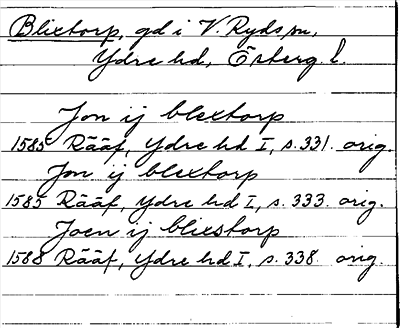 Blixtorp, gd i V. Ryds sn,
Ydre hd, Österg. l.
Jon ij blextorp
1585 Rääf, Ydre hd I, s. 331. orig.
Jon ij blextorp
1585 Rääf, Ydre hd I, s. 333. orig.
Joen ij blixstorp
1588 Rääf, Ydre hd I, s. 338. orig.